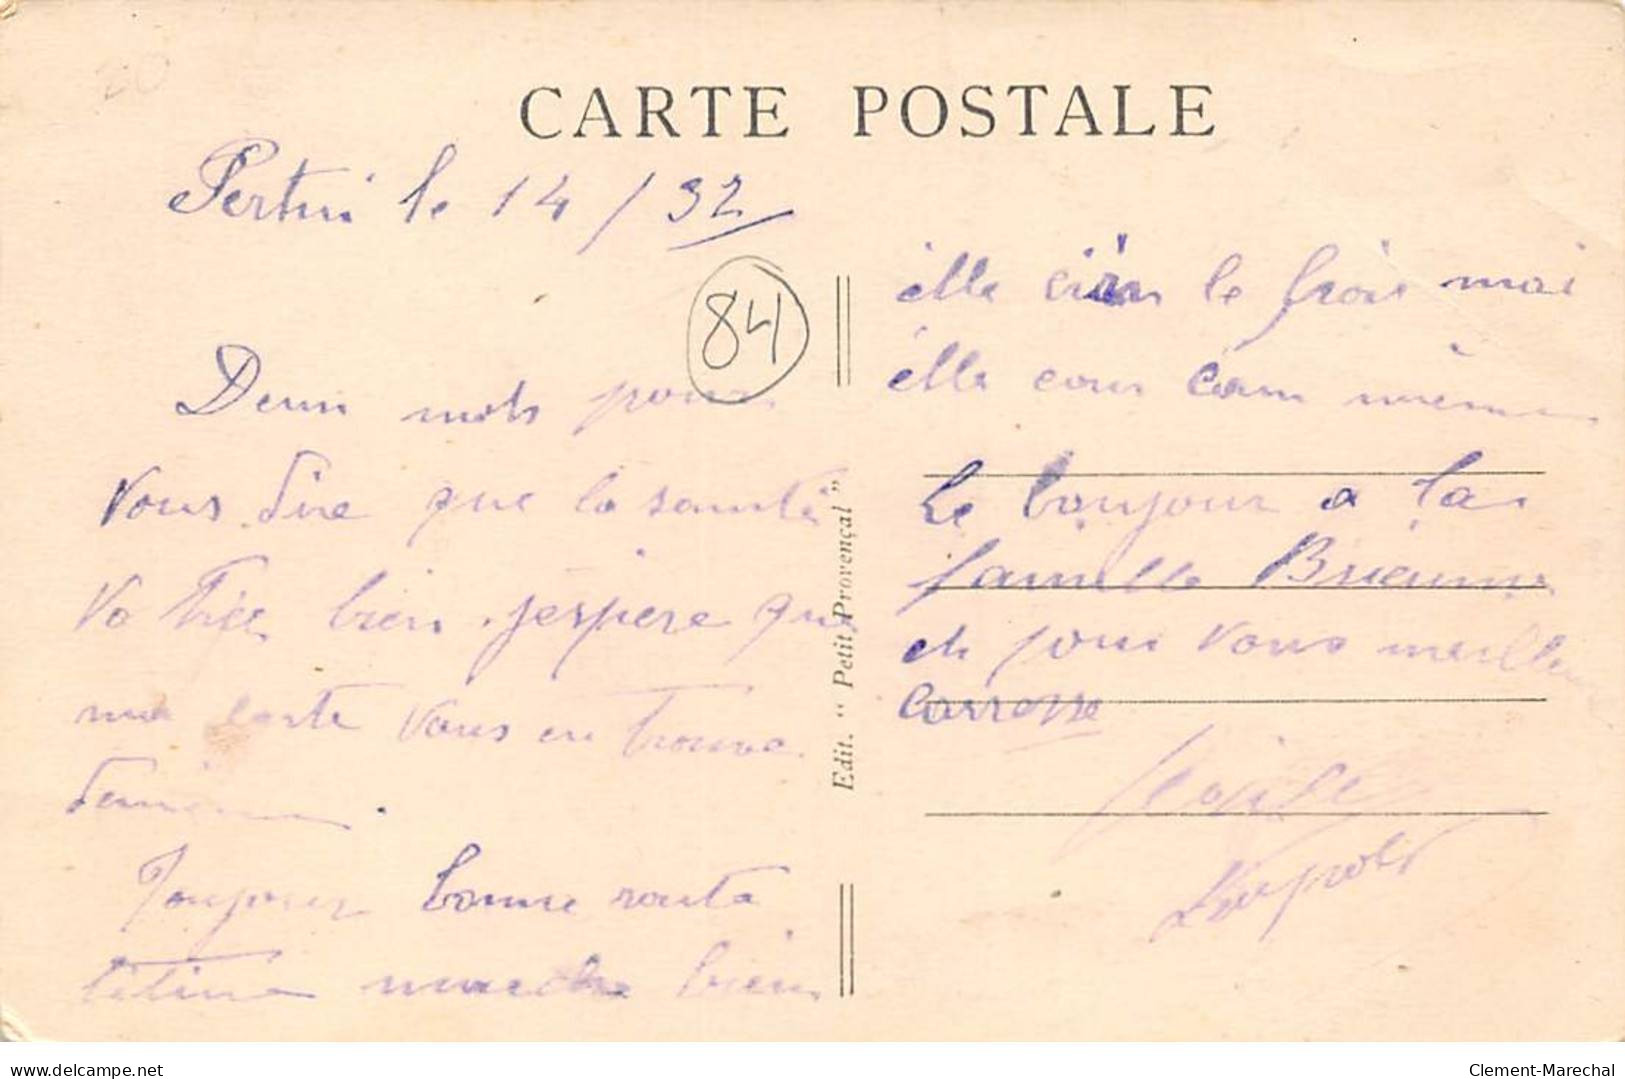 CARTE POSTALE
Pertui le 14 / 32
84
Deux mots pour
vous dire que la santé
va très bien j'espère que
ma carte vous en trouve
de même.
Toujour bonne route
titine marche bien
Edit. “ Petit Provençal ”
elle crain le froi mai
elle cour quan même
Le bonjour a la
famille
et pour vous meilleur
carresse
Leopold
delcampe.net
Clement-Marechal